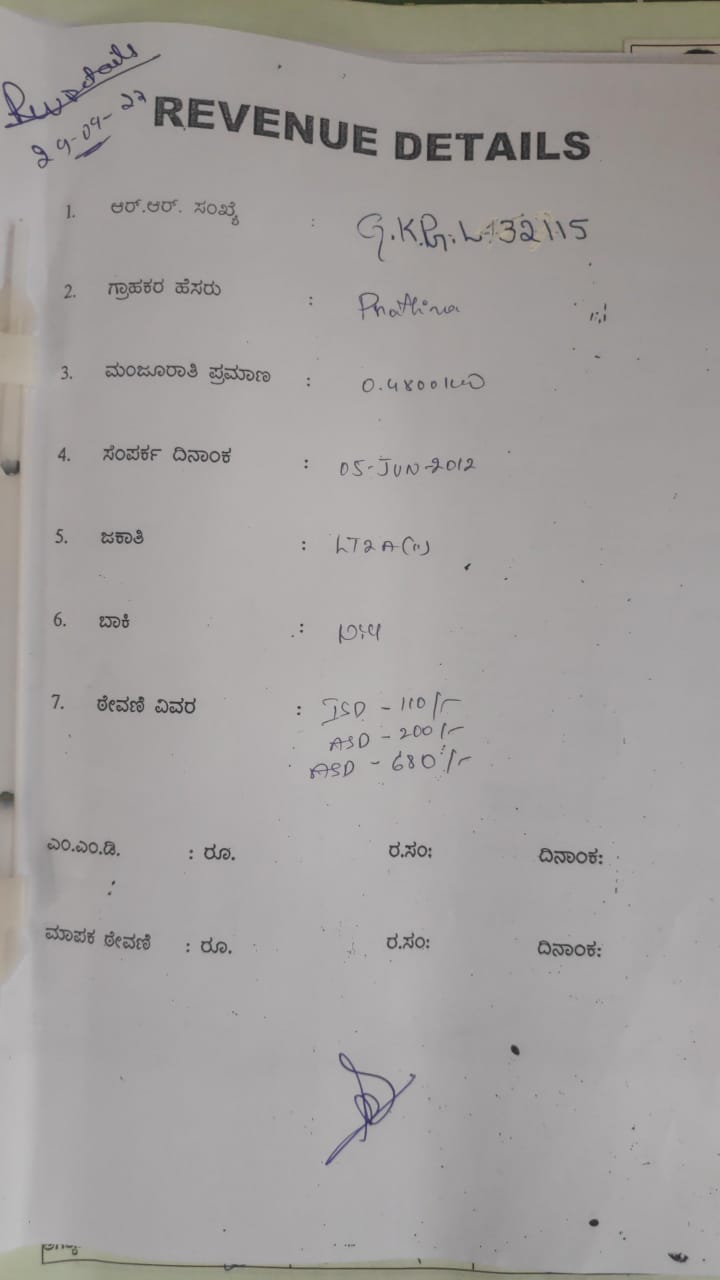 29-04-23
REVENUE DETAILS
1. ಆರ್.ಆರ್. ಸಂಖ್ಯೆ : G.K.P.G.L-132115
2. ಗ್ರಾಹಕರ ಹೆಸರು : Phathima
3. ಮಂಜೂರಾತಿ ಪ್ರಮಾಣ : 0.4800KW
4. ಸಂಪರ್ಕ ದಿನಾಂಕ : 05-JUN-2012
5. ಜಕಾತಿ : LT2A(ii)
6. ಬಾಕಿ :
7. ಠೇವಣಿ ವಿವರ : ISD - 110/-
ASD - 200/-
ASD - 680/-
ಎಂ.ಎಂ.ಡಿ. : ರೂ. ರ.ಸಂ: ದಿನಾಂಕ:
ಮಾಪಕ ಠೇವಣಿ : ರೂ. ರ.ಸಂ: ದಿನಾಂಕ: